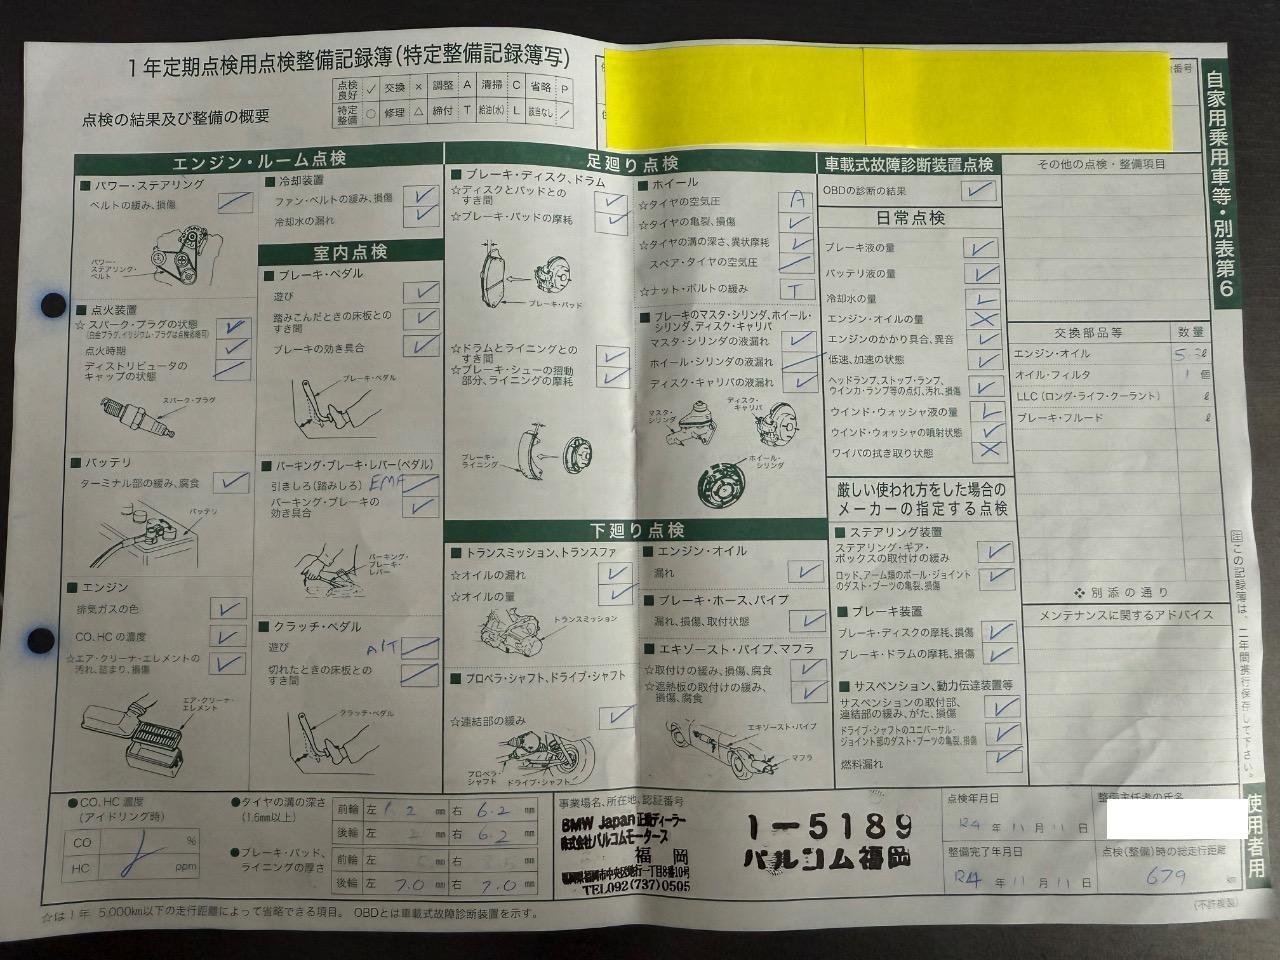 1年定期点検用点検整備記録簿(特定整備記録簿写)
点検の結果及び整備の概要
点検良好 ✓ 交換 × 調整 A 清掃 C 省略 P
特定整備 ○ 修理 △ 締付 T 給油(水) L 該当なし ／
番号
自家用乗用車等・別表第6
エンジン・ルーム点検
■ パワー・ステアリング
ベルトの緩み、損傷
パワー・ステアリング・ベルト
■ 点火装置
☆ スパーク・プラグの状態
(白金プラグ、イリジウム・プラグは点検省略可)
点火時期
ディストリビュータのキャップの状態
スパーク・プラグ
■ バッテリ
ターミナル部の緩み、腐食
バッテリ
■ エンジン
排気ガスの色
CO、HCの濃度
☆エア・クリーナ・エレメントの汚れ、詰まり、損傷
エア・クリーナ・エレメント
■ 冷却装置
ファン・ベルトの緩み、損傷
冷却水の漏れ
室内点検
■ ブレーキ・ペダル
遊び
踏みこんだときの床板とのすき間
ブレーキの効き具合
ブレーキ・ペダル
■ パーキング・ブレーキ・レバー(ペダル)
引きしろ(踏みしろ) EMF
パーキング・ブレーキの効き具合
パーキング・ブレーキ・レバー
■ クラッチ・ペダル
遊び A/T
切れたときの床板とのすき間
クラッチ・ペダル
足廻り点検
■ ブレーキ・ディスク、ドラム
☆ディスクとパッドとのすき間
☆ブレーキ・パッドの摩耗
ブレーキ・パッド
☆ドラムとライニングとのすき間
☆ブレーキ・シューの摺動部分、ライニングの摩耗
ブレーキ・ライニング
■ ホイール
☆タイヤの空気圧 A
☆タイヤの亀裂、損傷
☆タイヤの溝の深さ、異状摩耗
スペア・タイヤの空気圧
☆ナット・ボルトの緩み T
■ ブレーキのマスタ・シリンダ、ホイール・シリンダ、ディスク・キャリパ
マスタ・シリンダの液漏れ
ホイール・シリンダの液漏れ
ディスク・キャリパの液漏れ
マスタ・シリンダ
ディスク・キャリパ
ホイール・シリンダ
下廻り点検
■ トランスミッション、トランスファ
☆オイルの漏れ
☆オイルの量
トランスミッション
■ プロペラ・シャフト、ドライブ・シャフト
☆連結部の緩み
プロペラ・シャフト
ドライブ・シャフト
■ エンジン・オイル
漏れ
■ ブレーキ・ホース、パイプ
漏れ、損傷、取付状態
■ エキゾースト・パイプ、マフラ
☆取付けの緩み、損傷、腐食
☆遮熱板の取付けの緩み、損傷、腐食
エキゾースト・パイプ
マフラ
車載式故障診断装置点検
OBDの診断の結果
日常点検
ブレーキ液の量
バッテリ液の量
冷却水の量
エンジン・オイルの量
エンジンのかかり具合、異音
低速、加速の状態
ヘッドランプ、ストップ・ランプ、ウインカ・ランプ等の点灯、汚れ、損傷
ウインド・ウォッシャ液の量
ウインド・ウォッシャの噴射状態
ワイパの拭き取り状態
厳しい使われ方をした場合のメーカーの指定する点検
■ ステアリング装置
ステアリング・ギア・ボックスの取付けの緩み
ロッド、アーム類のボール・ジョイントのダスト・ブーツの亀裂、損傷
■ ブレーキ装置
ブレーキ・ディスクの摩耗、損傷
ブレーキ・ドラムの摩耗、損傷
■ サスペンション、動力伝達装置等
サスペンションの取付部、連結部の緩み、がた、損傷
ドライブ・シャフトのユニバーサル・ジョイント部のダスト・ブーツの亀裂、損傷
燃料漏れ
その他の点検・整備項目
交換部品等 数量
エンジン・オイル ℓ
オイル・フィルタ 1 個
LLC(ロング・ライフ・クーラント) ℓ
ブレーキ・フルード ℓ
❖ 別添の通り
メンテナンスに関するアドバイス
この記録簿は、二年間携行保存して下さい。
使用者用
● CO、HC 濃度
(アイドリング時)
CO %
HC ppm
● タイヤの溝の深さ
(1.6mm以上)
前輪 左 mm 右 6.2 mm
後輪 左 mm 右 6.2 mm
● ブレーキ・パッド、ライニングの厚さ
前輪 左 mm 右 mm
後輪 左 7.0 mm 右 7.0 mm
事業場名、所在地、認証番号
BMW Japan 正規ディーラー
株式会社バルコムモータース
福岡
TEL092(737)0505
1-5189
バルコム福岡
点検年月日
R4 年 11 月 11 日
整備完了年月日
R4 年 11 月 11 日
整備主任者の氏名
点検(整備)時の総走行距離
679 km
☆は1年 5,000km以下の走行距離によって省略できる項目。 OBDとは車載式故障診断装置を示す。
(不許複製)